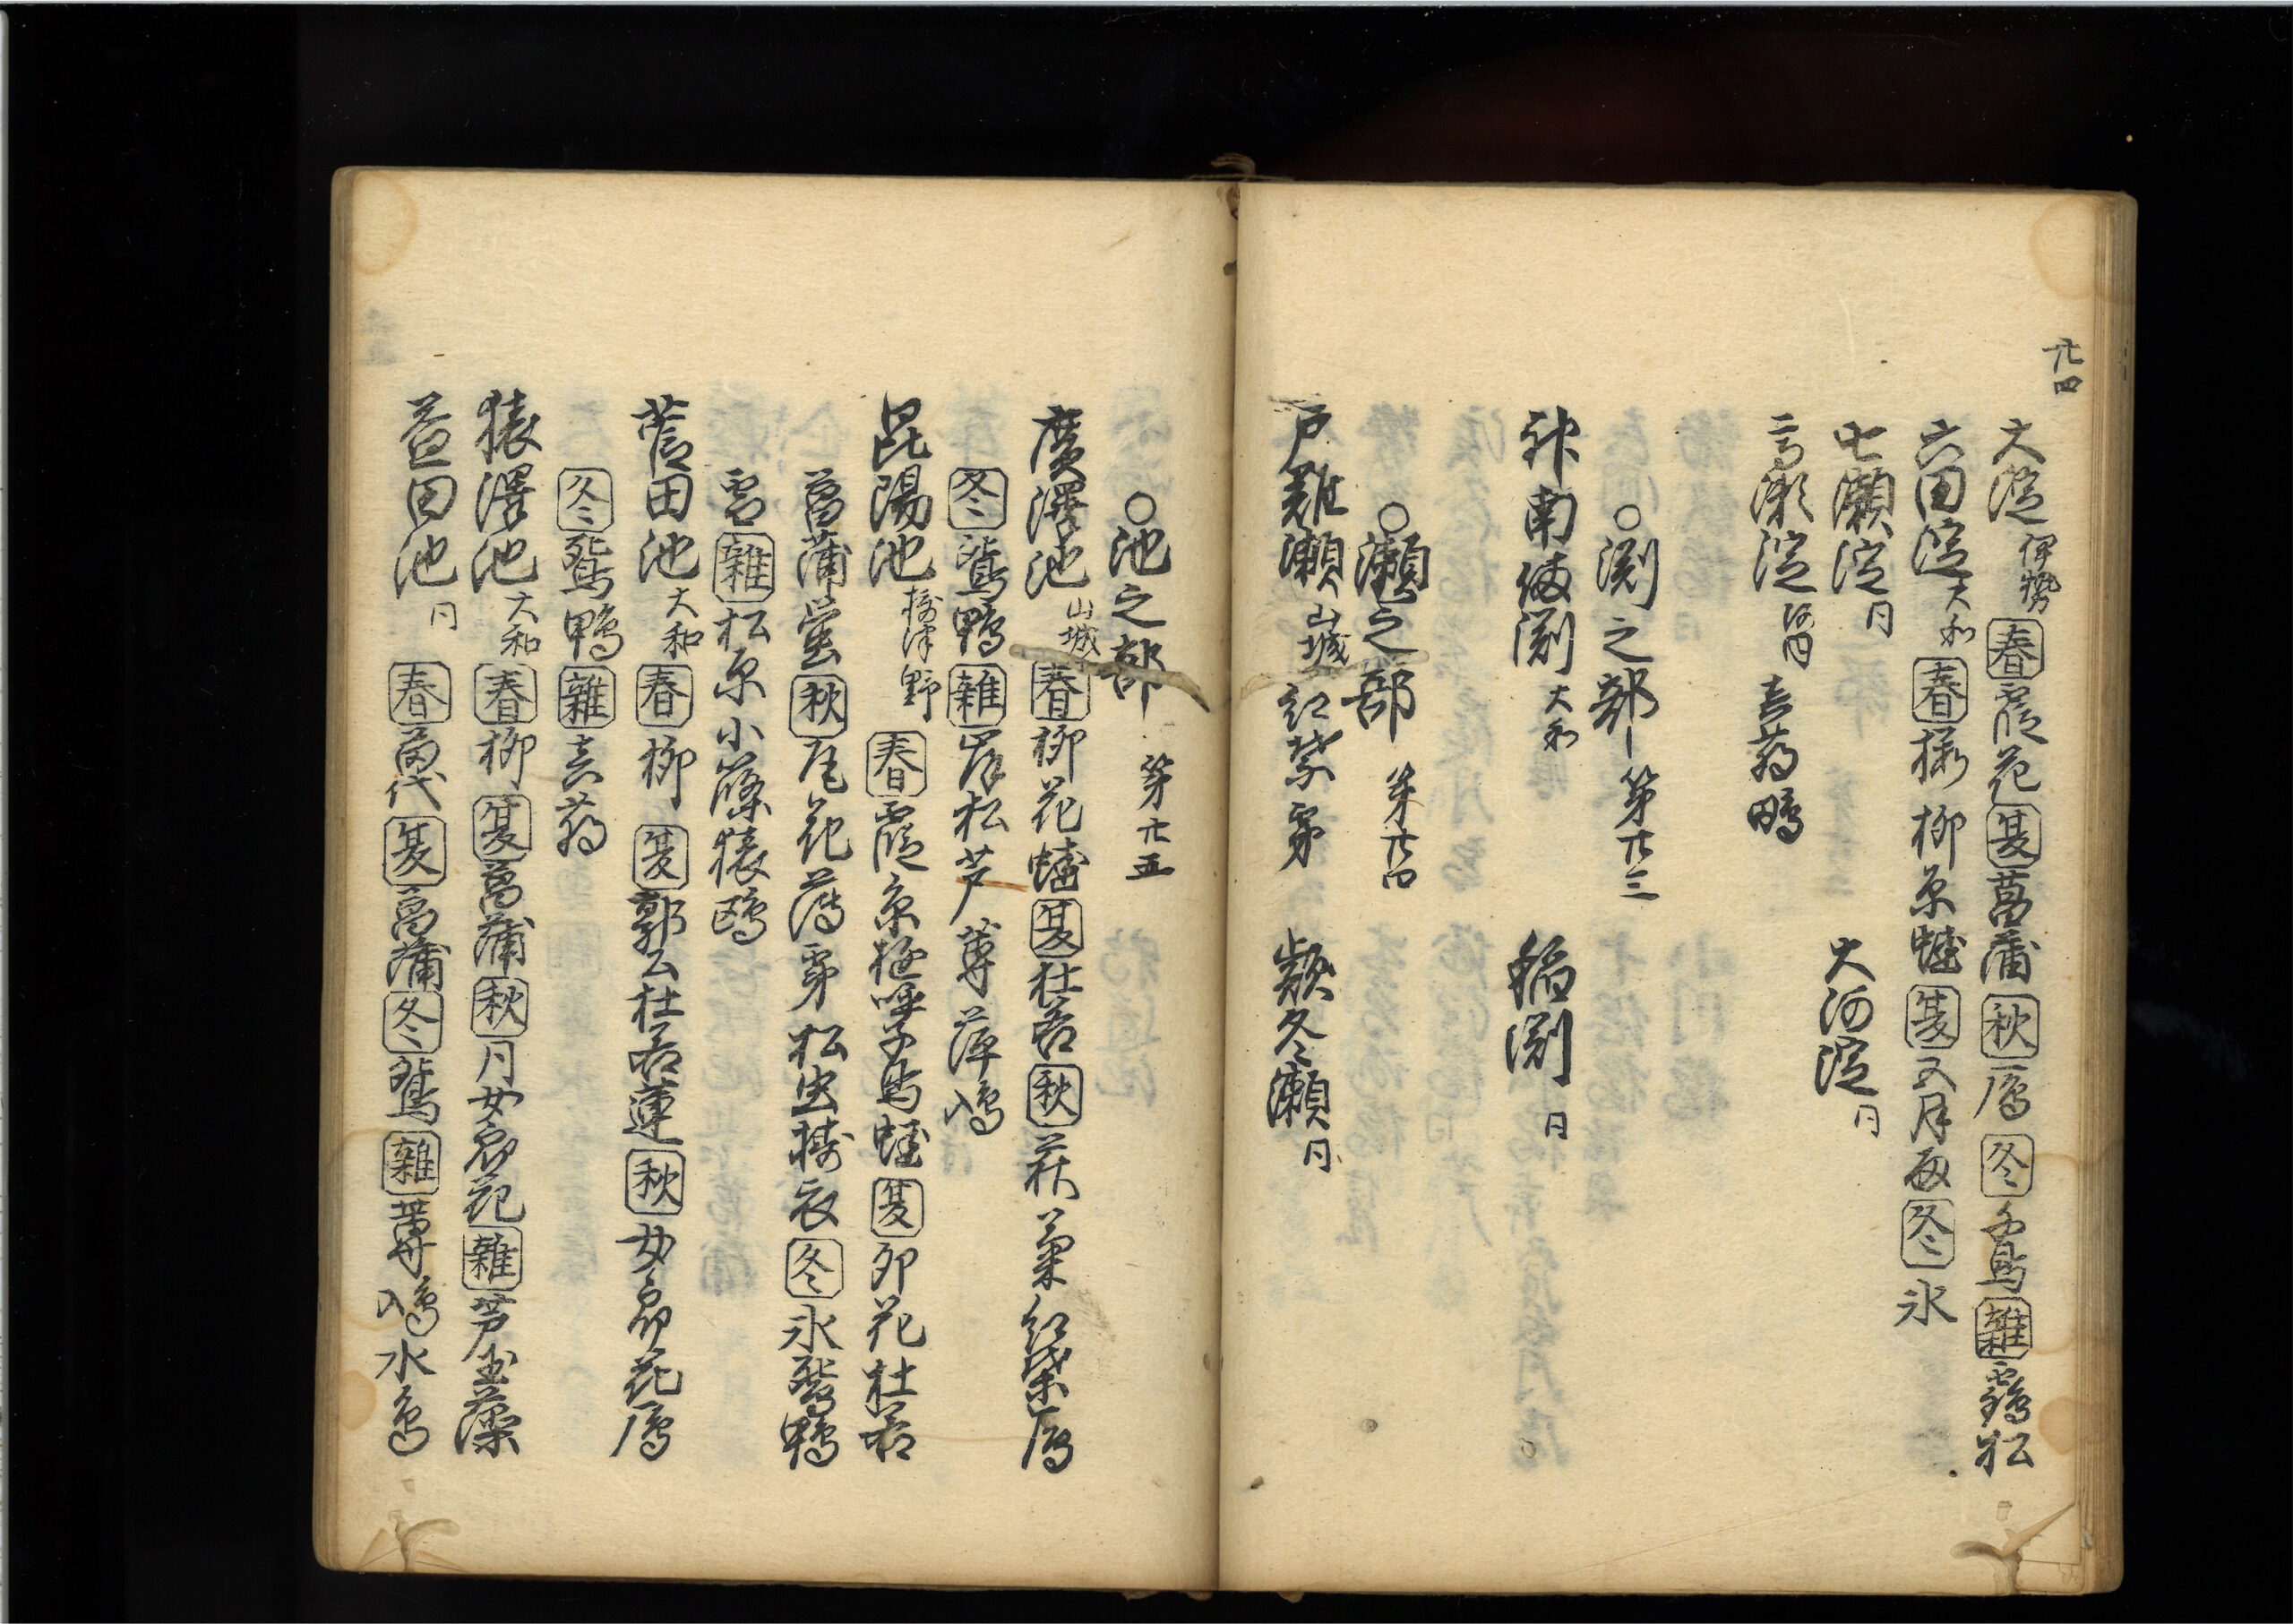 廿四
大淀 伊勢 春 霞花 夏 菖蒲 秋 鴈 冬 千鳥 雑 鶴松
六田淀 大和 春 桜 柳原蛙 夏 五月雨 冬 氷
七瀬淀 同 大河淀 同
高瀬淀 河内 真菰 鴫
○渕之部 第廿三
神南備渕 大和 稲渕 同
○瀬之部 第廿四
戸難瀬 山城 紅葉 雲 款冬瀬 同
○池之部 第廿五
廣澤池 山城 春 柳花蛙 夏 杜若 秋 萩 菊 紅葉鴈
冬 鴛鴨 雑 岸松芦 蓴 萍 鳰
昆陽池 摂津 野 春 霞 糸桜呼子鳥蛙 夏 卯花杜若
菖蒲蛍 秋 尾花 薄 松虫擣衣 冬 氷鴛鴨
雪 雑 松原小篠猿鴎
菅田池 大和 春 柳 夏 郭公杜若蓮 秋 女郎花鴈
冬 鴛鴨 雑 真菰
猿澤池 大和 春 柳 夏 菖蒲 秋 月女郎花 雑 芦玉藻
益田池 同 春 苗代 夏 菖蒲 冬 鴛 雑 蓴 鳰水鳥